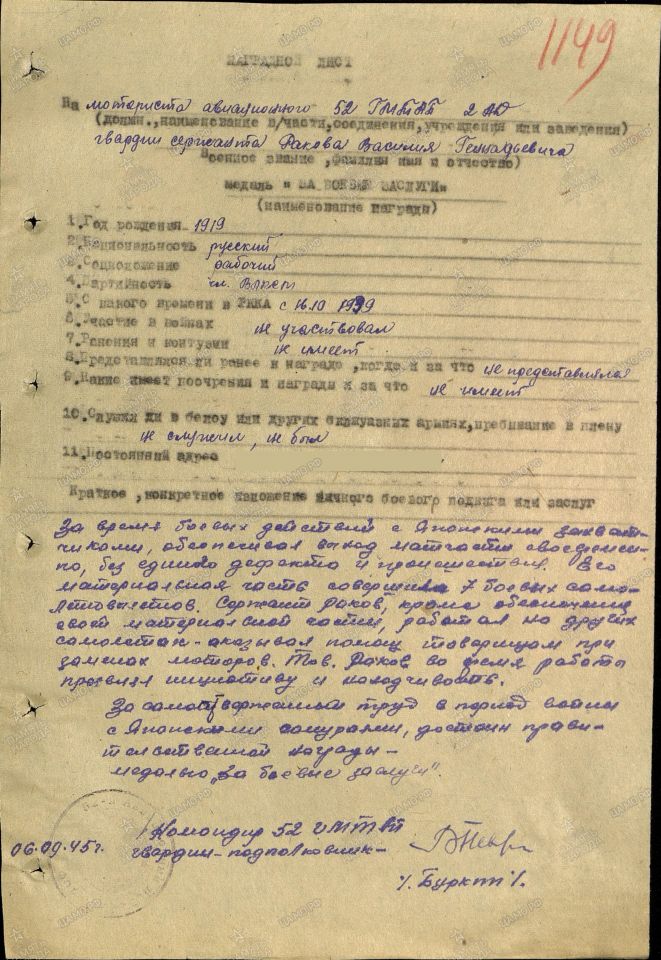 1149
НАГРАДНОЙ ЛИСТ
На моториста авиационного 52 ГМТАП 2 АД
(должн.,наименование в/части,соединения,учреждения или заведения)
гвардии сержанта Ракова Василия Геннадьевича
Военное звание ,фамилия имя и отчество)
медаль "ЗА БОЕВЫЕ ЗАСЛУГИ"
(наименование награды)
1.Год рождения 1919
2.Национальность русский
3.Соцположение рабочий
4.Партийность чл. ВЛКСМ
5.С какого времени в РККА с 16.10 1939
6.Участие в войнах не участвовал
7.Ранения и контузии не имеет
8.Представлялся ли ранее к награде ,когда и за что не представлялся
9.Какие имеет поощрения и награды и за что не имеет
10.Служил ли в белой или других буржуазных армиях,пребывание в плену
не служил, не был
11.Постоянный адрес
Краткое ,конкретное изложение личного боевого подвига или заслуг
За время боевых действий с Японскими захват-
чиками, обеспечивал выход матчасти своевремен-
но, без единого дефекта и происшествия. Его
материальная часть совершила 7 боевых само-
летовылетов. Сержант Раков, кроме обеспечения
своей материальной части, работал на других
самолетах - оказывал помощ товарищам при
заменах моторов. Тов. Раков во время работы
проявлял инциативу и находчивость.
За самоотверженный труд в период войны
с Японскими самураями, достоин прави-
тельственной награды -
медалью "За боевые заслуги".
Командир 52 ГМТАП
06.09.45 г. гвардии-подполковник-
/. Буркот /.